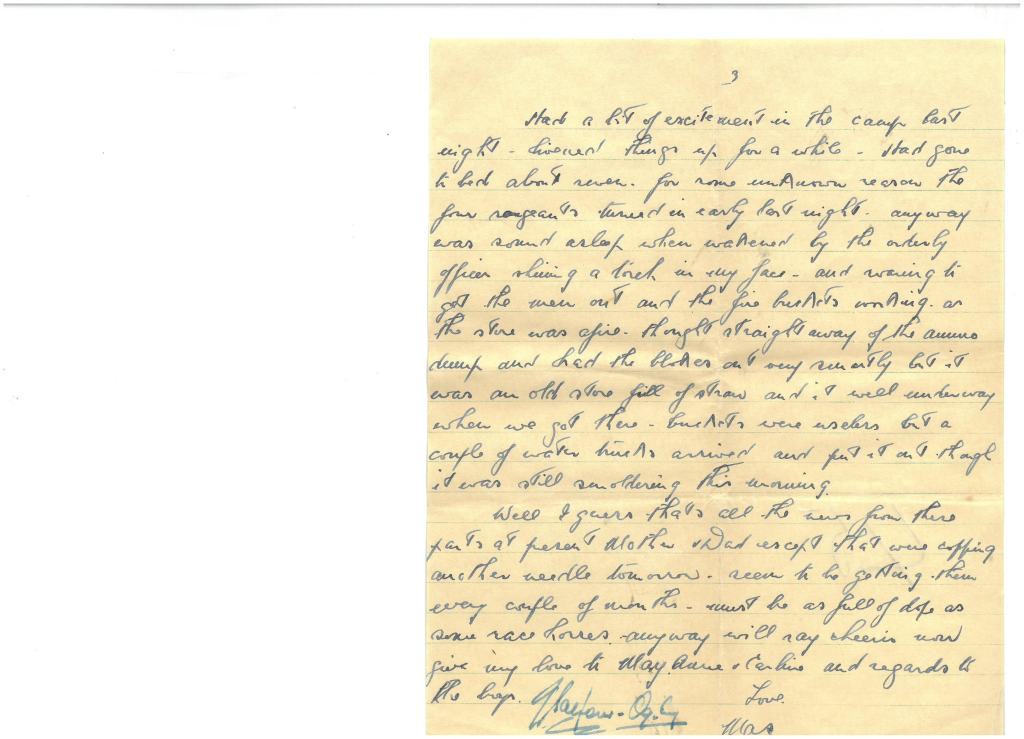 3
Had a bit of excitement in the camp last
night - livened things up for a while - Had gone
to bed about seven. for some unknown reason the
four sergeants turned in early last night. anyway
was sound asleep when wakened by the orderly
officer shining a torch in my face - and roaring to
get the men out and the fire buckets working. as
the store was afire. thought straight away of the ammo
dump and had the blokes out very smartly but it
was an old store full of straw and it well underway
when we got there - buckets were useless but a
couple of water trucks arrived and put it out though
it was still smoldering this morning.
Well I guess that's all the news from these
parts at present Mother & Dad except that were copping
another needle tomorrow. seem to be getting them
every couple of months - must be as full of dope as
some race horses. anyway will say cheerio now
give my love to May Anne & and regards to
the boys.
Love
Mac